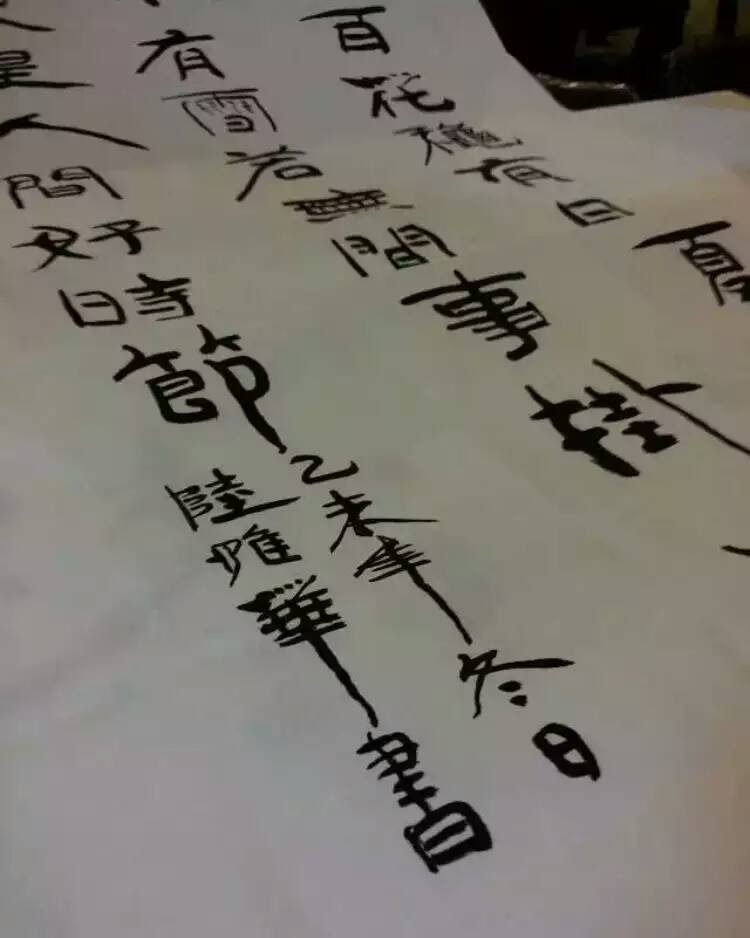 百花龝有月夏
有雪若無間事挂
是人間好時節
乙未年冬日
陸惟華書